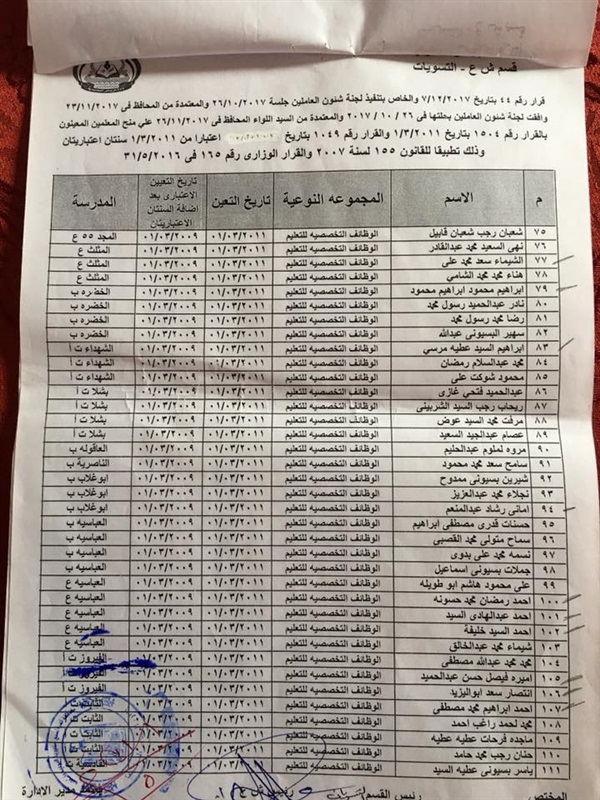 قسم ش ع - التسويات
قرار رقم ٤٤ بتاريخ ٧/١٢/٢٠١٧ والخاص بتنفيذ لجنة شئون العاملين جلسة ٢٦/١٠/٢٠١٧ والمعتمدة من المحافظ فى ٢٣/١١/٢٠١٧
وافقت لجنة شئون العاملين بجلتها فى ٢٦ / ١٠ / ٢٠١٧ والمعتمدة من السيد اللواء المحافظ فى ٢٦/١١/٢٠١٧ علي منح المعلمين المعينون
بالقرار رقم ١٥٠٤ بتاريخ ١/٣/٢٠١١ والقرار رقم ١٠٤٩ بتاريخ اعتبارا من ١/٣/٢٠١١ سنتان اعتباريتان
وذلك تطبيقا للقانون ١٥٥ لسنة ٢٠٠٧ والقرار الوزارى رقم ١٦٥ فى ٣١/٥/٢٠١٦
م الاسم المجموعه النوعية تاريخ التعين تاريخ التعيين الاعتبارى بعد اضافة السنتان الاعتباريتان المدرسة
٧٥ شعبان رجب شعبان قابيل الوظائف التخصصيه للتعليم ٠١/٠٣/٢٠١١ ٠١/٠٣/٢٠٠٩ المجد ٥٥ ع
٧٦ نهى السعيد محمد عبدالقادر الوظائف التخصصيه للتعليم ٠١/٠٣/٢٠١١ ٠١/٠٣/٢٠٠٩ المثلث ع
٧٧ الشيماء سعد محمد على الوظائف التخصصيه للتعليم ٠١/٠٣/٢٠١١ ٠١/٠٣/٢٠٠٩ المثلث ع
٧٨ هناء محمد محمد الشامي الوظائف التخصصيه للتعليم ٠١/٠٣/٢٠١١ ٠١/٠٣/٢٠٠٩ المثلث ع
٧٩ ابراهيم محمود ابراهيم محمود الوظائف التخصصيه للتعليم ٠١/٠٣/٢٠١١ ٠١/٠٣/٢٠٠٩ الخضره ب
٨٠ نادر عبدالحميد رسول محمد الوظائف التخصصيه للتعليم ٠١/٠٣/٢٠١١ ٠١/٠٣/٢٠٠٩ الخضره ب
٨١ رضا محمد رسول محمد الوظائف التخصصيه للتعليم ٠١/٠٣/٢٠١١ ٠١/٠٣/٢٠٠٩ الخضره ب
٨٢ سهير البسيونى عبدالله الوظائف التخصصيه للتعليم ٠١/٠٣/٢٠١١ ٠١/٠٣/٢٠٠٩ الخضره ب
٨٣ ابراهيم السيد عطيه مرسي الوظائف التخصصيه للتعليم ٠١/٠٣/٢٠١١ ٠١/٠٣/٢٠٠٩ الشهداء ت أ
٨٤ محمد عبدالسلام رمضان الوظائف التخصصيه للتعليم ٠١/٠٣/٢٠١١ ٠١/٠٣/٢٠٠٩ الشهداء ت أ
٨٥ محمود شوكت على الوظائف التخصصيه للتعليم ٠١/٠٣/٢٠١١ ٠١/٠٣/٢٠٠٩ الشهداء ت أ
٨٦ عبدالحميد فتحي غازى الوظائف التخصصيه للتعليم ٠١/٠٣/٢٠١١ ٠١/٠٣/٢٠٠٩ بشلا ت أ
٨٧ ريحاب رجب السيد الشربينى الوظائف التخصصيه للتعليم ٠١/٠٣/٢٠١١ ٠١/٠٣/٢٠٠٩ بشلا ت أ
٨٨ مرفت محمد السيد عوض الوظائف التخصصيه للتعليم ٠١/٠٣/٢٠١١ ٠١/٠٣/٢٠٠٩ بشلا ت أ
٨٩ عصام عبدالجيد السعيد الوظائف التخصصيه للتعليم ٠١/٠٣/٢٠١١ ٠١/٠٣/٢٠٠٩ بشلا ت أ
٩٠ مروه لملوم عبدالحليم الوظائف التخصصيه للتعليم ٠١/٠٣/٢٠١١ ٠١/٠٣/٢٠٠٩ العاقوله ب
٩١ سامح سعد محمد محمود الوظائف التخصصيه للتعليم ٠١/٠٣/٢٠١١ ٠١/٠٣/٢٠٠٩ الناصرية ب
٩٢ شيرين بسيونى ممدوح الوظائف التخصصيه للتعليم ٠١/٠٣/٢٠١١ ٠١/٠٣/٢٠٠٩ ابوغلاب ب
٩٣ نجلاء محمد عبدالعزيز الوظائف التخصصيه للتعليم ٠١/٠٣/٢٠١١ ٠١/٠٣/٢٠٠٩ ابوغلاب ب
٩٤ امانى رشاد عبدالمنعم الوظائف التخصصيه للتعليم ٠١/٠٣/٢٠١١ ٠١/٠٣/٢٠٠٩ ابوغلاب ب
٩٥ حسنات قدرى مصطفى ابراهيم الوظائف التخصصيه للتعليم ٠١/٠٣/٢٠١١ ٠١/٠٣/٢٠٠٩ العباسيه ب
٩٦ سماح متولى محمد القصبى الوظائف التخصصيه للتعليم ٠١/٠٣/٢٠١١ ٠١/٠٣/٢٠٠٩ العباسيه ب
٩٧ نسمه محمد على بدوى الوظائف التخصصيه للتعليم ٠١/٠٣/٢٠١١ ٠١/٠٣/٢٠٠٩ العباسيه ب
٩٨ جملات بسيونى اسماعيل الوظائف التخصصيه للتعليم ٠١/٠٣/٢٠١١ ٠١/٠٣/٢٠٠٩ العباسيه ب
٩٩ على محمود هاشم ابو طويله الوظائف التخصصيه للتعليم ٠١/٠٣/٢٠١١ ٠١/٠٣/٢٠٠٩ العباسيه ع
١٠٠ احمد رمضان محمد حسونه الوظائف التخصصيه للتعليم ٠١/٠٣/٢٠١١ ٠١/٠٣/٢٠٠٩ العباسيه ع
١٠١ احمد عبدالهادى السيد الوظائف التخصصيه للتعليم ٠١/٠٣/٢٠١١ ٠١/٠٣/٢٠٠٩ العباسيه ع
١٠٢ احمد السيد خليفة الوظائف التخصصيه للتعليم ٠١/٠٣/٢٠١١ ٠١/٠٣/٢٠٠٩ العباسيه ع
١٠٣ شيماء محمد عبدالخالق الوظائف التخصصيه للتعليم ٠١/٠٣/٢٠١١ ٠١/٠٣/٢٠٠٩ العباسيه ع
١٠٤ محمد عبدالله مصطفى الوظائف التخصصيه للتعليم ٠١/٠٣/٢٠١١ ٠١/٠٣/٢٠٠٩ الفيروز ت أ
١٠٥ اميره فيصل حسن عبدالحميد الوظائف التخصصيه للتعليم ٠١/٠٣/٢٠١١ ٠١/٠٣/٢٠٠٩
١٠٦ انتصار سعد ابواليزيد الوظائف التخصصيه للتعليم ٠١/٠٣/٢٠١١ ٠١/٠٣/٢٠٠٩ الفيروز ت أ
١٠٧ احمد ابراهيم محمد مصطفى الوظائف التخصصيه للتعليم ٠١/٠٣/٢٠١١ ٠١/٠٣/٢٠٠٩
١٠٨ محمد لحمد راغب احمد الوظائف التخصصيه للتعليم ٠١/٠٣/٢٠١١ ٠١/٠٣/٢٠٠٩ الثابت ت أ
١٠٩ ماجده فرحات عطيه عطيه الوظائف التخصصيه للتعليم ٠١/٠٣/٢٠١١ ٠١/٠٣/٢٠٠٩ الثابت ت أ
١١٠ حنان رجب محمد حامد الوظائف التخصصيه للتعليم ٠١/٠٣/٢٠١١ ٠١/٠٣/٢٠٠٩ الثابت ت أ
١١١ ياسر بسيونى عطيه السيد الوظائف التخصصيه للتعليم ٠١/٠٣/٢٠١١ ٠١/٠٣/٢٠٠٩
المختص رئيس القسم مدير الادارة